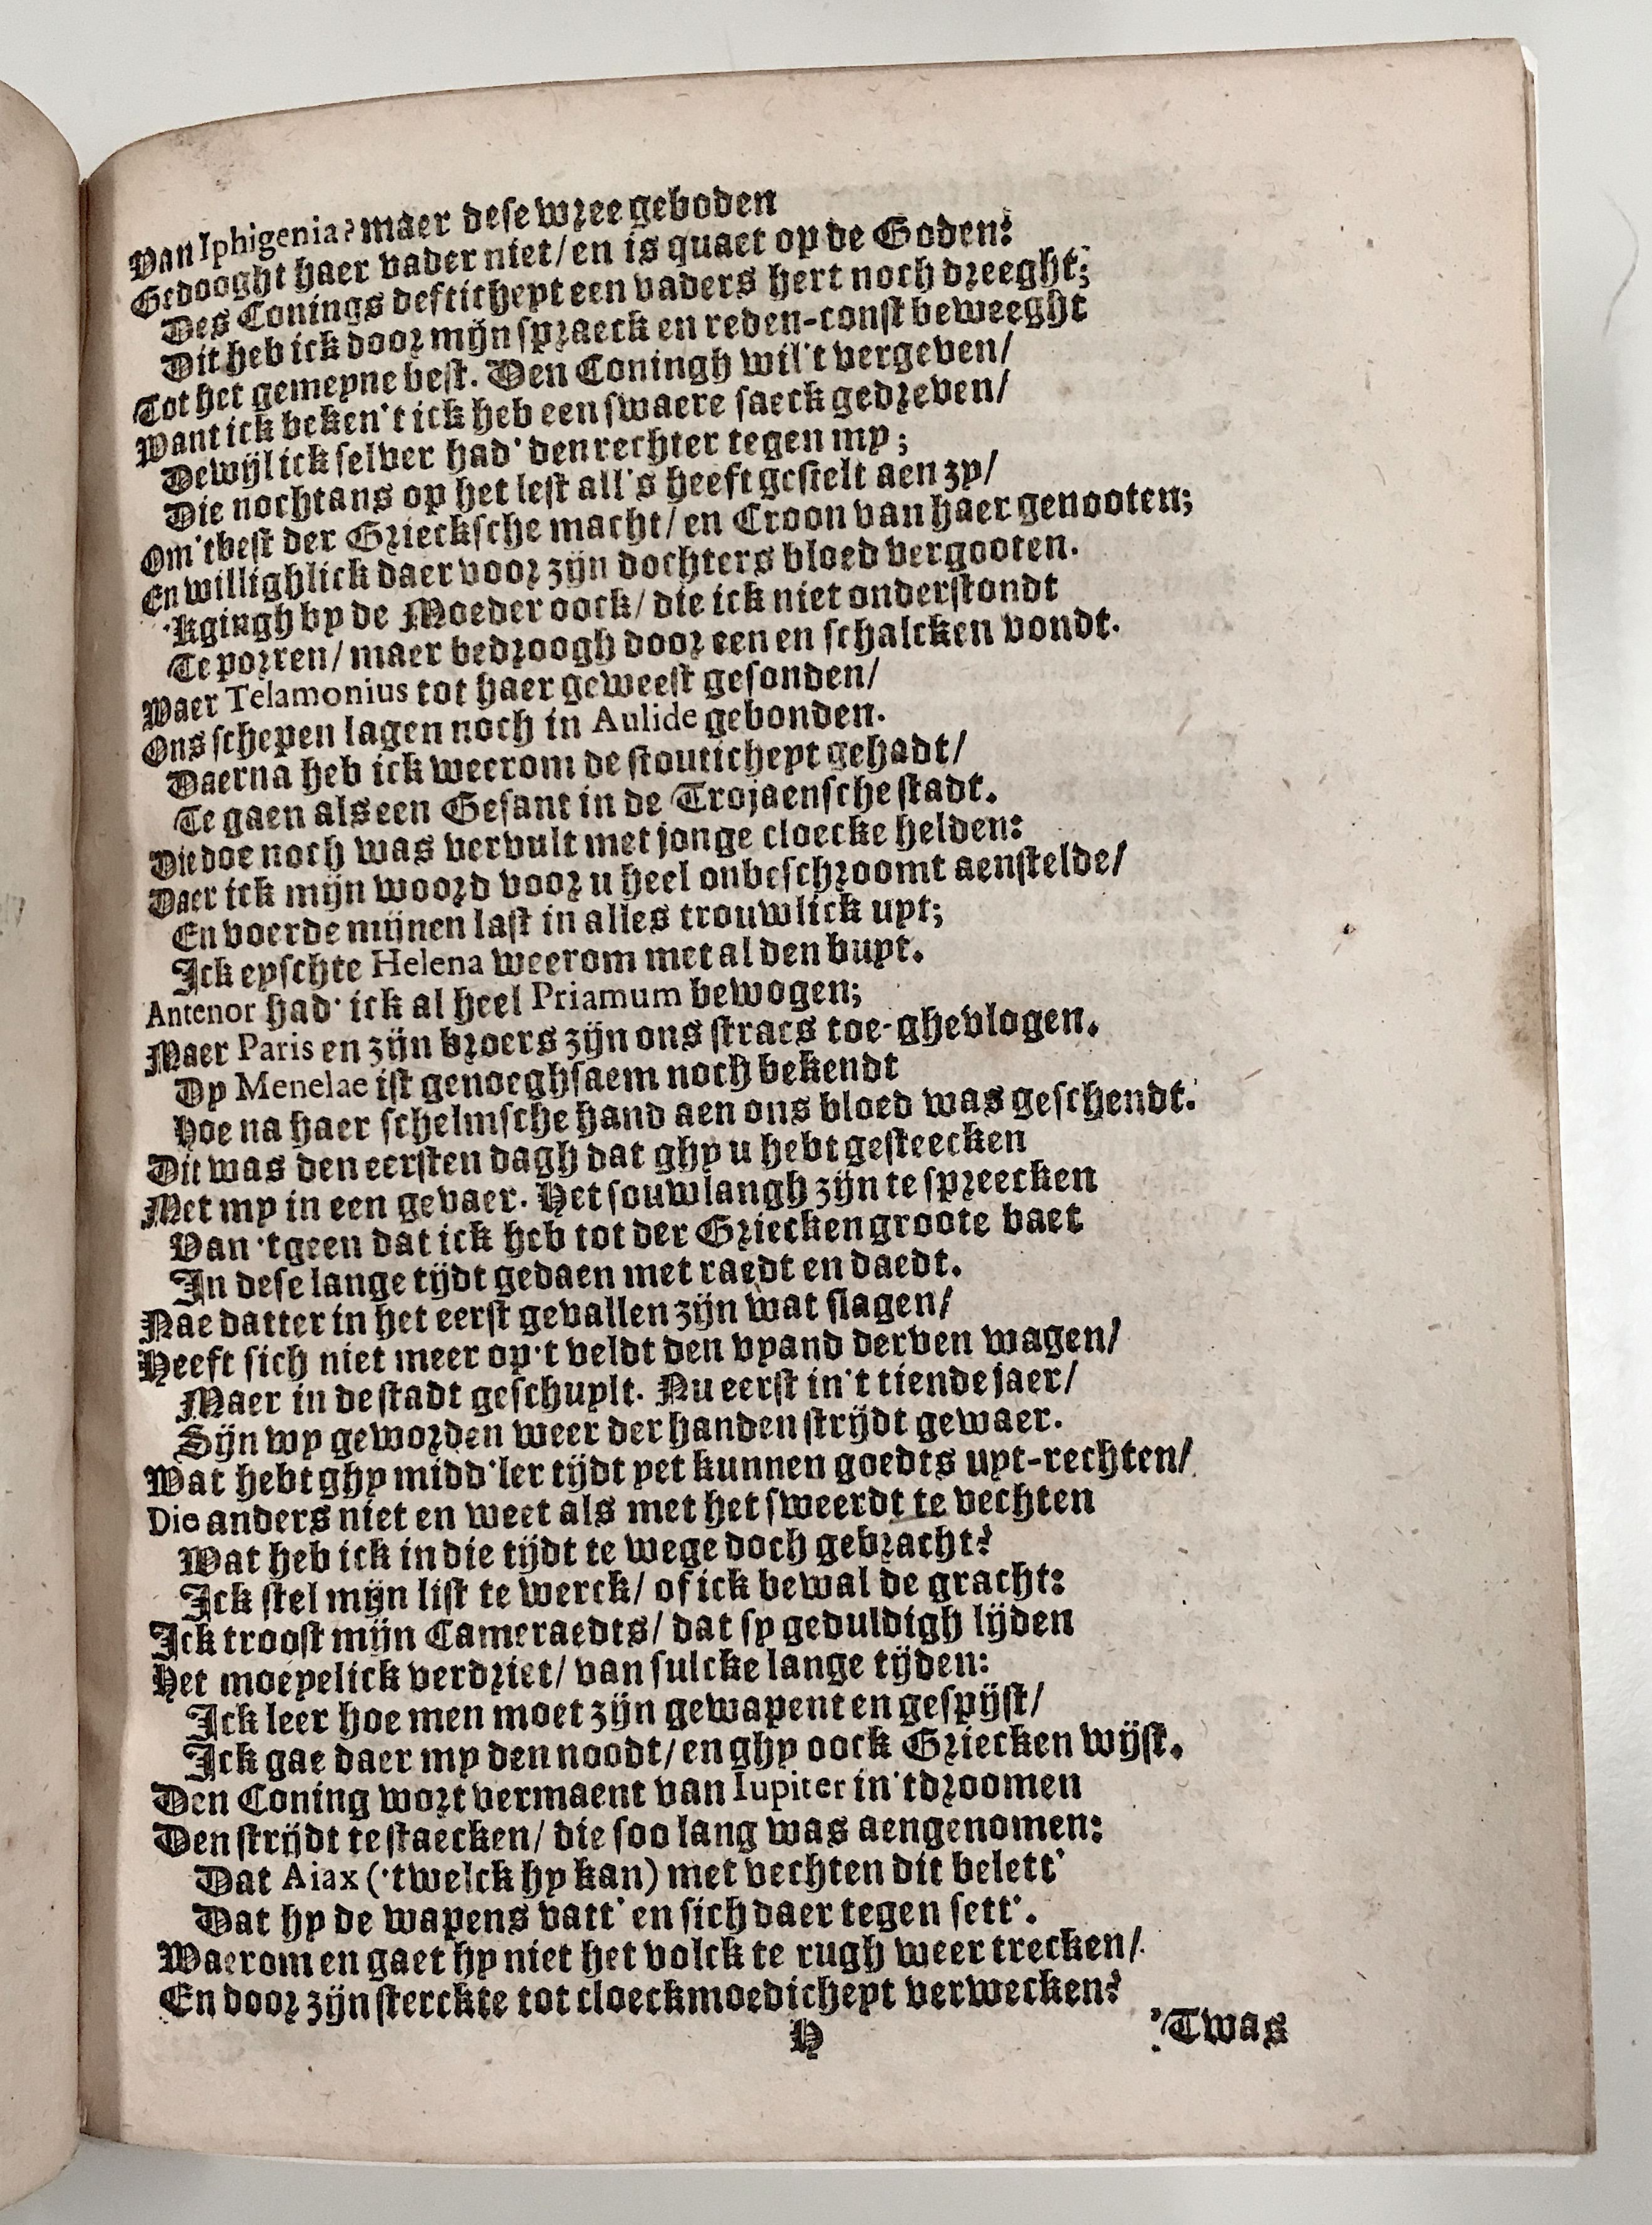 Van Iphigenia? maer dese wree geboden
Gedooght haer vader niet/ en is quaet op de Goden:
Des Conings deftichept een vaders hert noch dreeght;
Dit heb ick door mijn spraeck en reden-const beweeght
Tot het gemeyne best. Den Coningh wil't vergeven/
Want ick beken't ick heb een swaere saeck gedreven/
Dewijl ick selver had' den rechter tegen my;
Die nochtans op het lest all's heeft gestelt aen zy/
Om 't best der Griecksche macht/ en Croon van haer genooten;
En willighlick daer voor zijn dochters bloed vergooten.
'Kgingh by de Moeder oock/ die ick niet onderstondt
Te porren/ maer bedroogh door een en schalcken vondt.
Waer Telamonius tot haer geweest gesonden/
Ons schepen lagen noch in Aulide gebonden.
Daerna heb ick weerom de stouticheyt gehadt/
Te gaen als een Gesant in de Trojaensche stadt.
Die doe noch was vervult met jonge cloecke helden:
Daer ick mijn woord voor u heel onbeschroomt aenstelde/
En voerde mijnen last in alles trouwlick uyt;
Ick eyschte Helena weerom met al den buyt.
Antenor had' ick al heel Priamum bewogen;
Maer Paris en zijn broers zijn ons stracs toe-ghevlogen.
Dy Menelae ist genoeghsaem noch bekendt
Hoe na haer schelmsche hand aen ons bloed was geschendt.
Dit was den eersten dagh dat ghy u hebt gesteecken
Met my in een gevaer. Het souw langh zijn te spreecken
Van 'tgeen dat ick heb tot der Griecken groote baet
In dese lange tijdt gedaen met raedt en daedt.
Nae datter in het eerst gevallen zijn wat slagen/
Heeft sich niet meer op't veldt den vyand derven wagen/
Maer in de stadt geschuylt. Nu eerst in't tiende jaer/
Sijn wy geworden weer der handen strijdt gewaer.
Wat hebt ghy midd'ler tijdt yet kunnen goedts uyt-rechten/
Die anders niet en weet als met het sweerdt te vechten
Wat heb ick in die tijdt te wege doch gebracht?
Ick stel mijn list te werck/ of ick bewal de gracht:
Ick troost mijn Cameraedts/ dat sy geduldigh lijden
Het moeyelick verdriet/ van sulcke lange tijden:
Ick leer hoe men moet zijn gewapent en gespijst/
Ick gae daer my den noodt/ en ghy oock Griecken wijst.
Den Coning wort vermaent van Iupiter in'tdroomen
Den strijdt te staecken/ die soo lang was aengenomen:
Dat Aiax ('twelck hy kan) met vechten dit belett'
Dat hy de wapens vatt' en sich daer tegen sett'.
Waerom en gaet hy niet het volck te rugh weer trecken/
En door zijn sterckte tot cloeckmoedicheyt verwecken?
H
'Twas